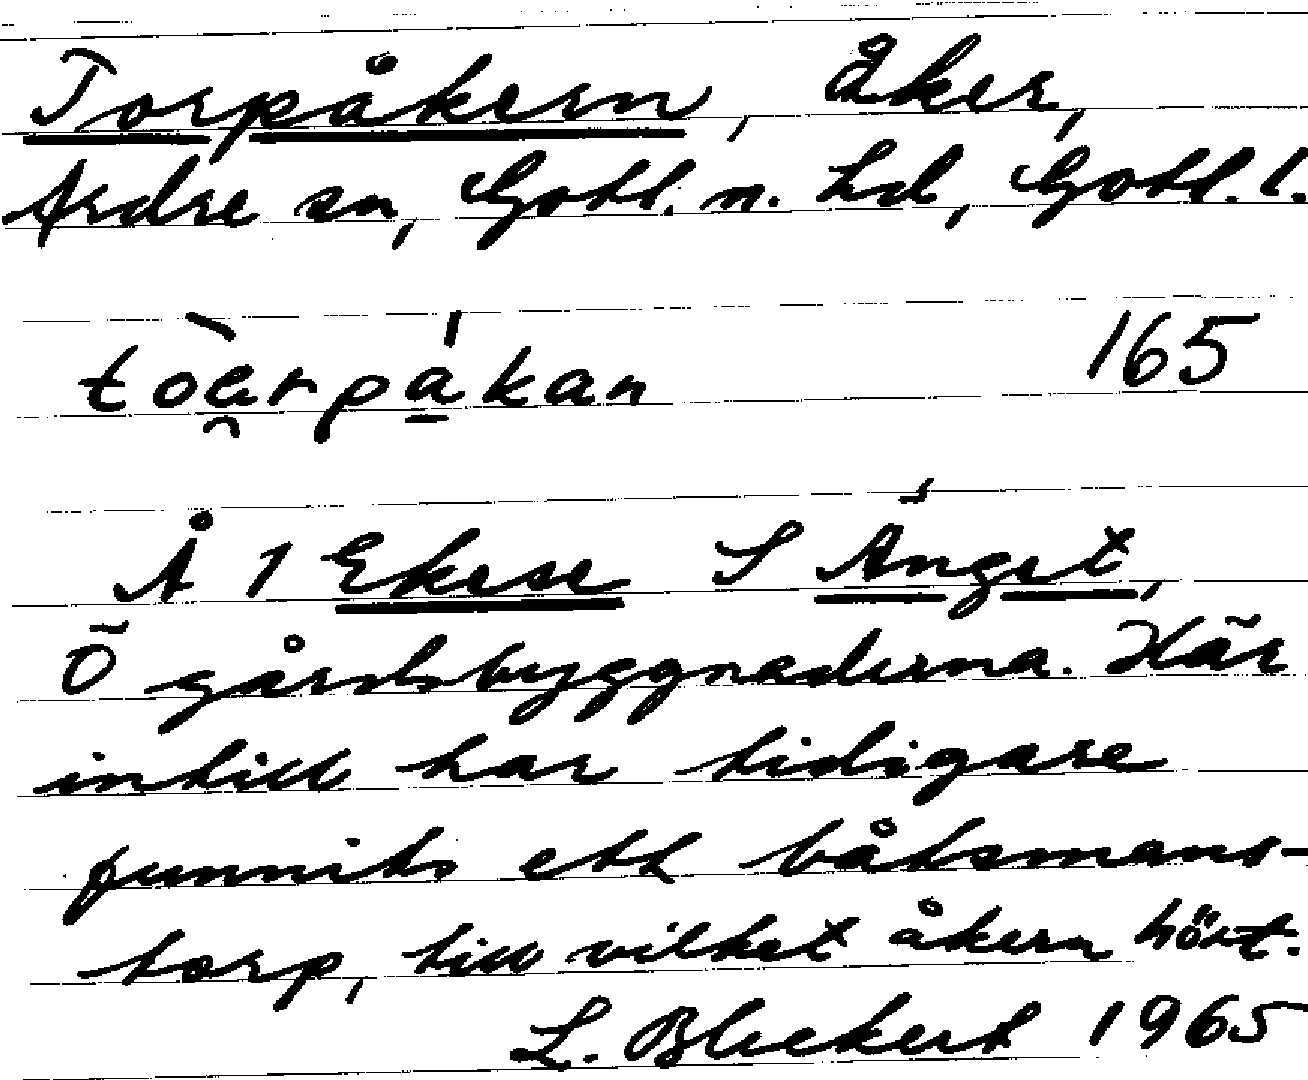 Torpåkern, Åker,
Ardre sn, Gotl. n. hd, Gotl. l.
tòa̯rpá̠kan 165
Å 1 Ekese S Änget,
Ö gårdsbyggnaderna. Här
intill har tidigare
funnits ett båtsmans-
torp, till vilket åkern hört.
L. Bleckert 1965